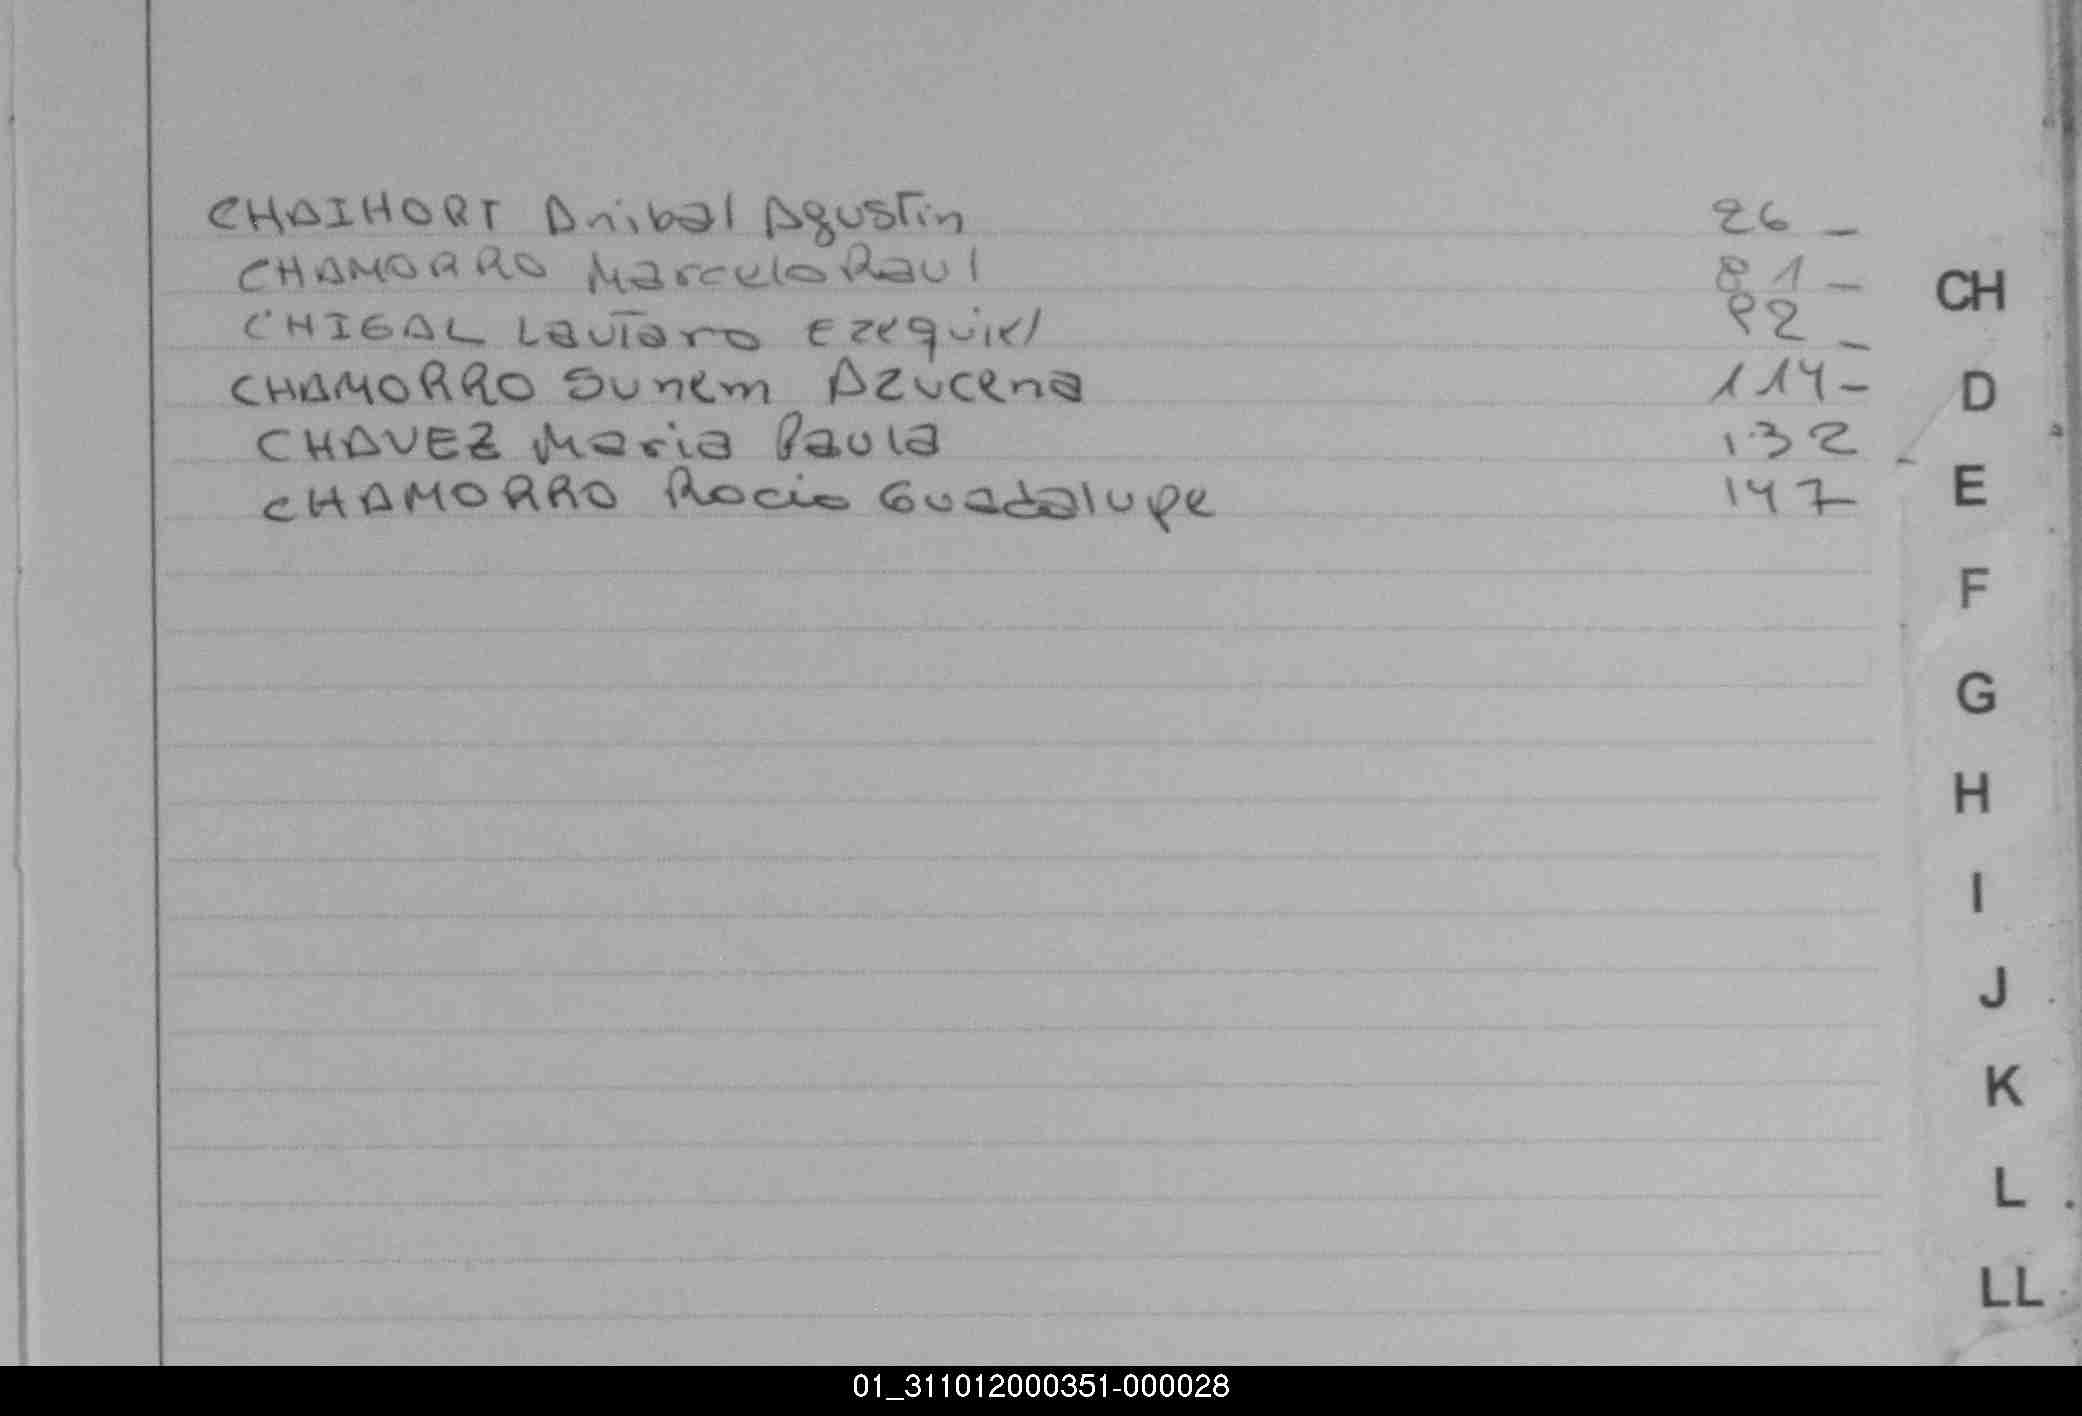 CHAIHORT Anibal Agustin 26 -
CHAMORRO Marcelo Raul 81 -
CHIGAL Lautaro Ezequiel 92 -
CHAMORRO Sunem Azucena 114 -
CHAVEZ Maria Paula 132
CHAMORRO Rocio Guadalupe 147
CH
D
E
F
G
H
I
J
K
L
LL
01_311012000351-000028